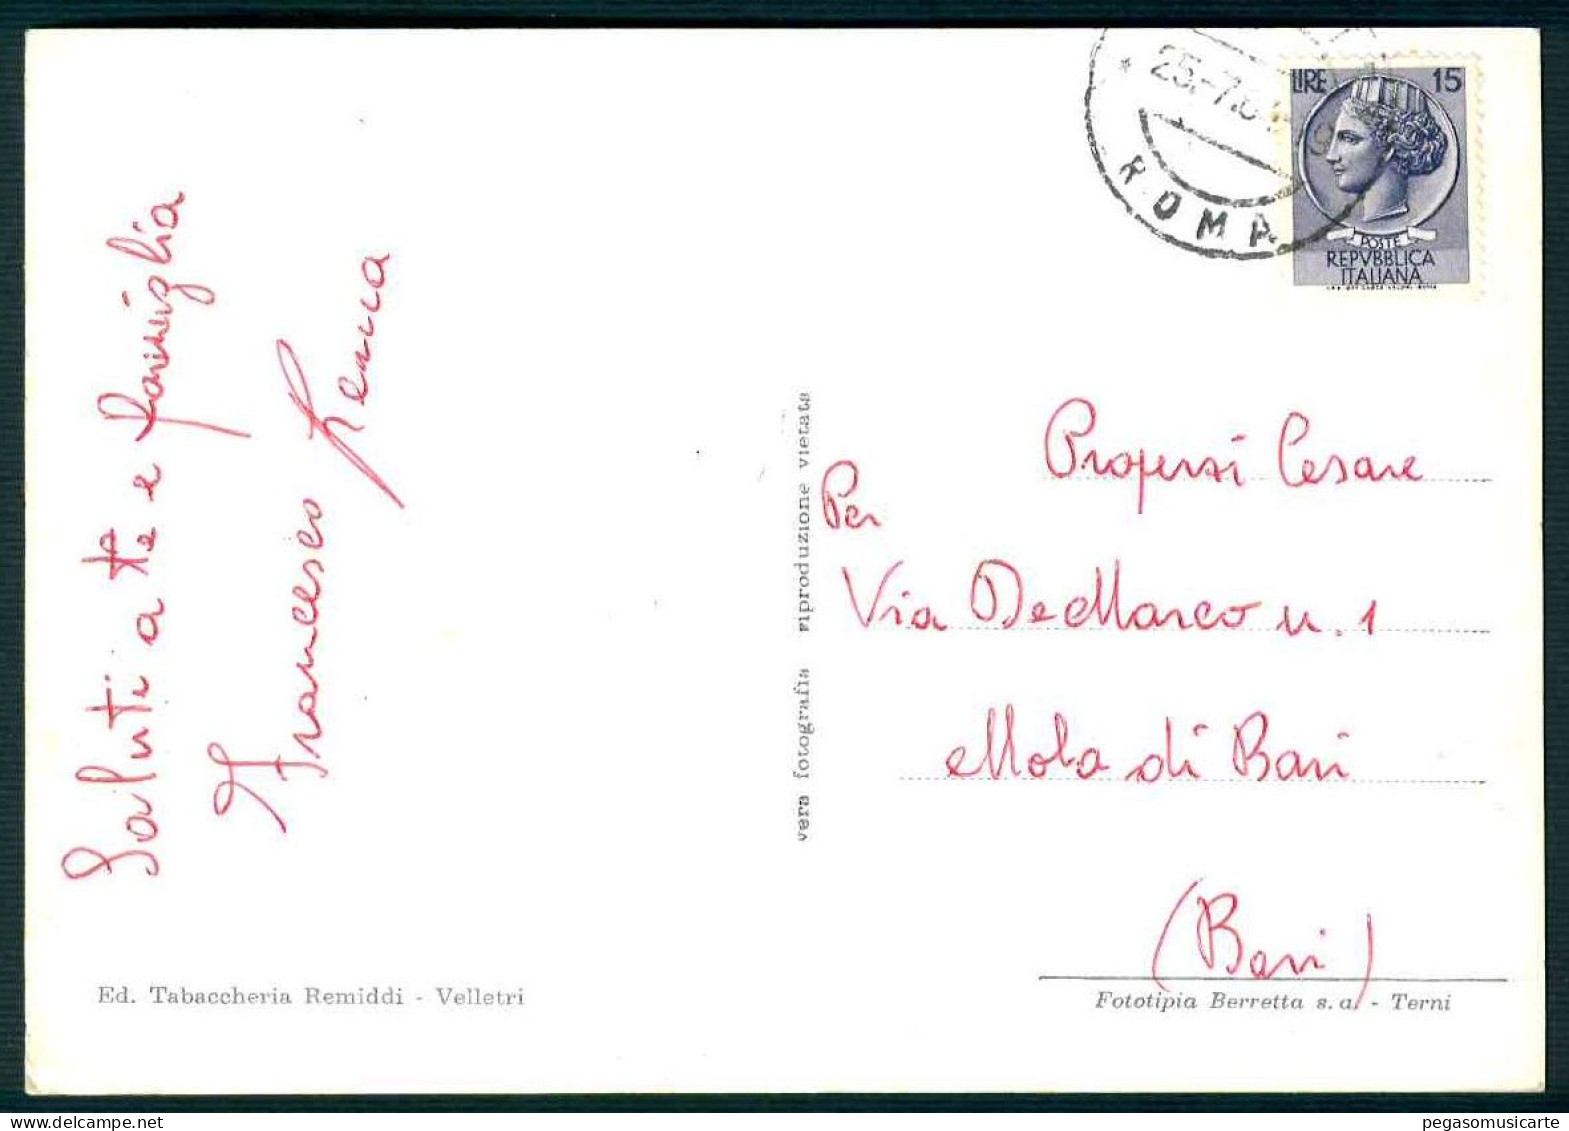 Saluti a te e famiglia
Francesco
25.-7.
ROMA
LIRE 15
POSTE
REPVBBLICA
ITALIANA
Per Properzi Cesare
Via De Marco n. 1
Mola di Bari
(Bari)
vera fotografia riproduzione vietata
Ed. Tabaccheria Remiddi - Velletri
Fototipia Berretta s. a. - Terni
pegasomusicarte